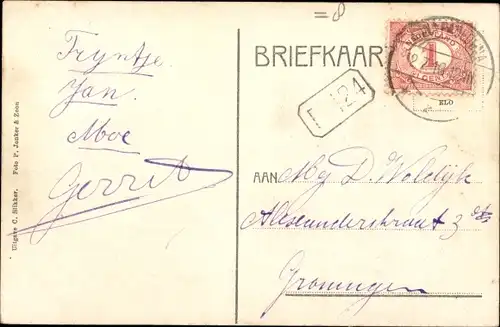 =8
Fryntje
Jan
Moe
Gerrit
Uitgave C. Slikker. Foto P. Junker & Zoon
BRIEFKAART
1
124
AAN Mej D. Woldijk
Alexanderstraat 3
Groningen